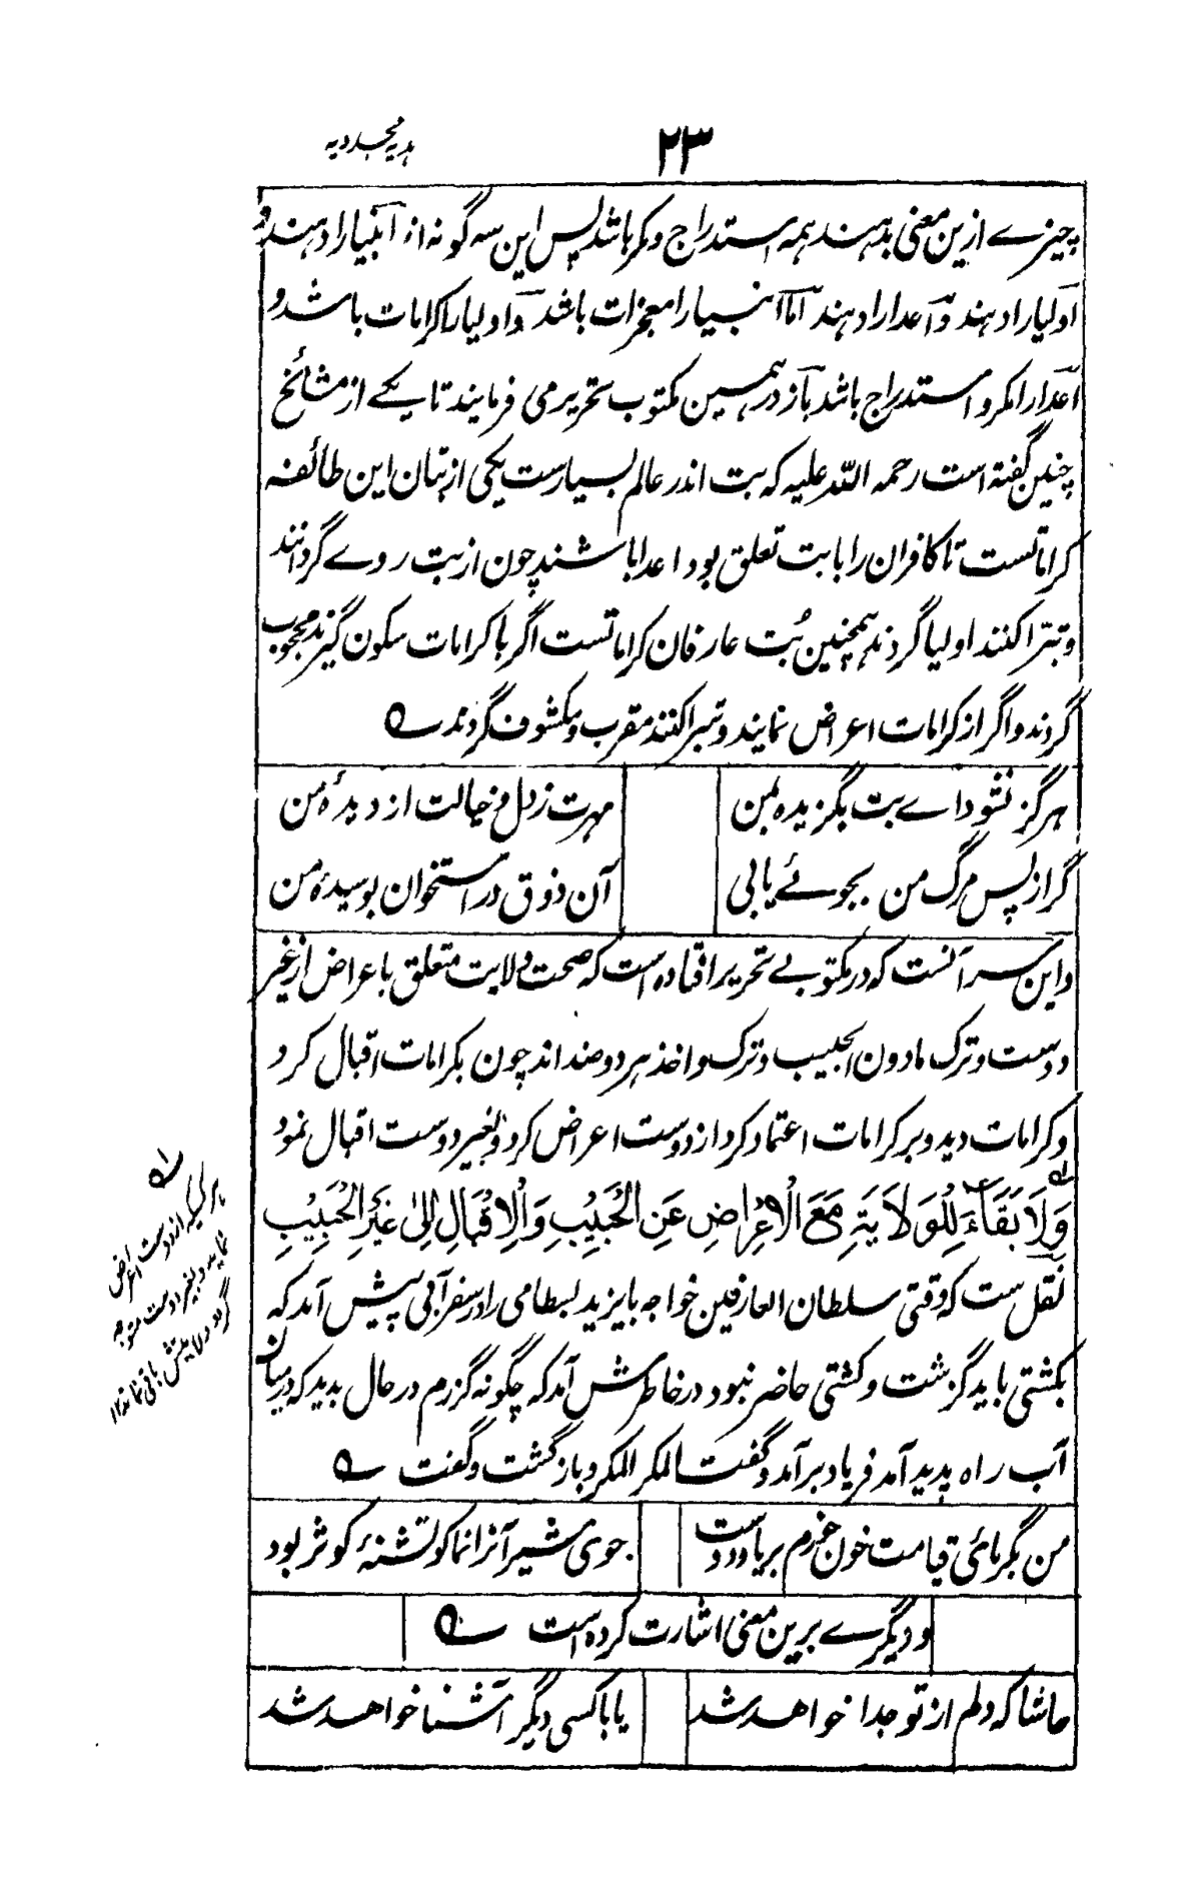 ۲۳
ہدیہ مجددیہ
چیزے ازین معنی بدہند ہمہ استدراج و مکر باشد پس این سہ گونہ از انبیا را دہند و
اولیا را دہند و اعدا را دہند اما انبیا را معجزات باشد و اولیا را کرامات باشد و
اعدا را مکر و استدراج باشد باز در ہمین مکتوب تحریر می فرمایند تا یکے از مشائخ
چنین گفتہ است رحمہ اللہ علیہ کہ بت اندر عالم بسیارست یکی از بتان این طائفہ
کراماتست تا کافران را بابت تعلق بود اعدا باشند چون از بت روے گردانند
و تبرا کنند اولیا گردند ہمچنین بُت عارفان کراماتست اگر باکرامات سکون گیرند محجوب
گردند و اگر از کرامات اعراض نمایند و تبرا کنند مقرب و مکشوف گردند ؎
ہرگز نشود اے بت بگزیدہ من
مہرت ز دل و خیالت از دیدۂ من
گر از پس مرگ من بجوئے یابی
آن ذوق در استخوان بوسیدۂ من
و این سرآنست کہ در مکتوبے تحریر افتادہ است کہ صحت ولایت متعلق باعراض از غیر
دوست و ترک مادون الحبیب و ترک و اخذ ہر دو ضد اند چون بکرامات اقبال کرد
و کرامات دید و بر کرامات اعتماد کرد از دوست اعراض کرد و بغیر دوست اقبال نمود
وَلَا بَقَاءَ لِلْوَلَايَةِ مَعَ الْاِعْرَاضِ عَنِ الْحَبِيْبِ وَالْاِقْبَالِ اِلٰى غَيْرِ الْحَبِيْبِ
نقل ست کہ وقتی سلطان العارفین خواجہ بایزید بسطامی را در سفر آبی پیش آمد کہ
بکشتی باید گزشت و کشتی حاضر نبود در خاطرش آمد کہ چگونہ گزرم در حال بدید کہ درمیان
آب راہ پدید آمد فریاد برآمد و گفت المکر المکر و باز گشت و گفت ؎
من بگرمائی قیامت خون خورم بر یاد دوست
جوی شیر آنرا نما کو تشنۂ کوثر بود
و دیگرے برین معنی اشارت کردہ است ؎
حاشا کہ دلم از تو جدا خواهد شد
یا با کسی دیگر آشنا خواهد شد
ہر کسیکہ از دوست اعراض
نماید و بغیر دوست متوجہ
گردد ولایتش باقی نماند ۱۲